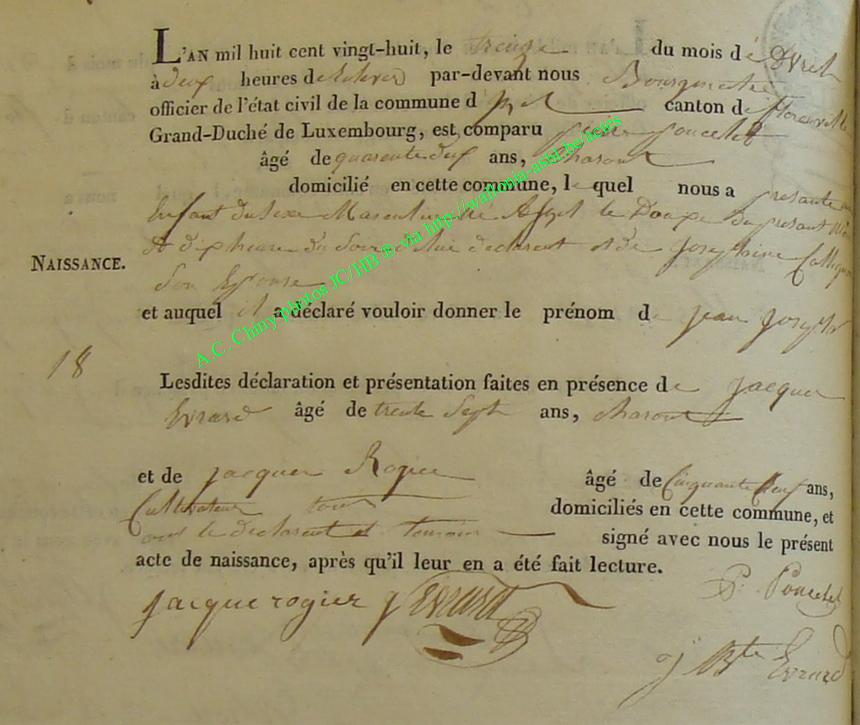 L'AN mil huit cent vingt-huit, le treize du mois de Avril
à deux heures de relevée par-devant nous Bourgmestre
officier de l'état civil de la commune d canton de florenville
Grand-Duché de Luxembourg, est comparu poncelet
âgé de quarante deux ans, charon
domicilié en cette commune, lequel nous a présenté un
Enfant du sexe Masculin né le Douze du présent
A dix heure du Soir de lui declarent et de Josephine
Son Epouse
NAISSANCE.
et auquel il a déclaré vouloir donner le prénom de jean joseph
18
Lesdites déclaration et présentation faites en présence de jacque
Evrard âgé de trente Sept ans, charon
et de jacque Rogier âgé de Cinquante ans,
Cultivateur tous domiciliés en cette commune, et
ont le declarent et temoin signé avec nous le présent
acte de naissance, après qu'il leur en a été fait lecture.
P. Poncelet
jacque rogier J Evrard
J Bte Evrard
A.C. Chiny photos JC/HB ® via http://wallonia-asbl.be/actes